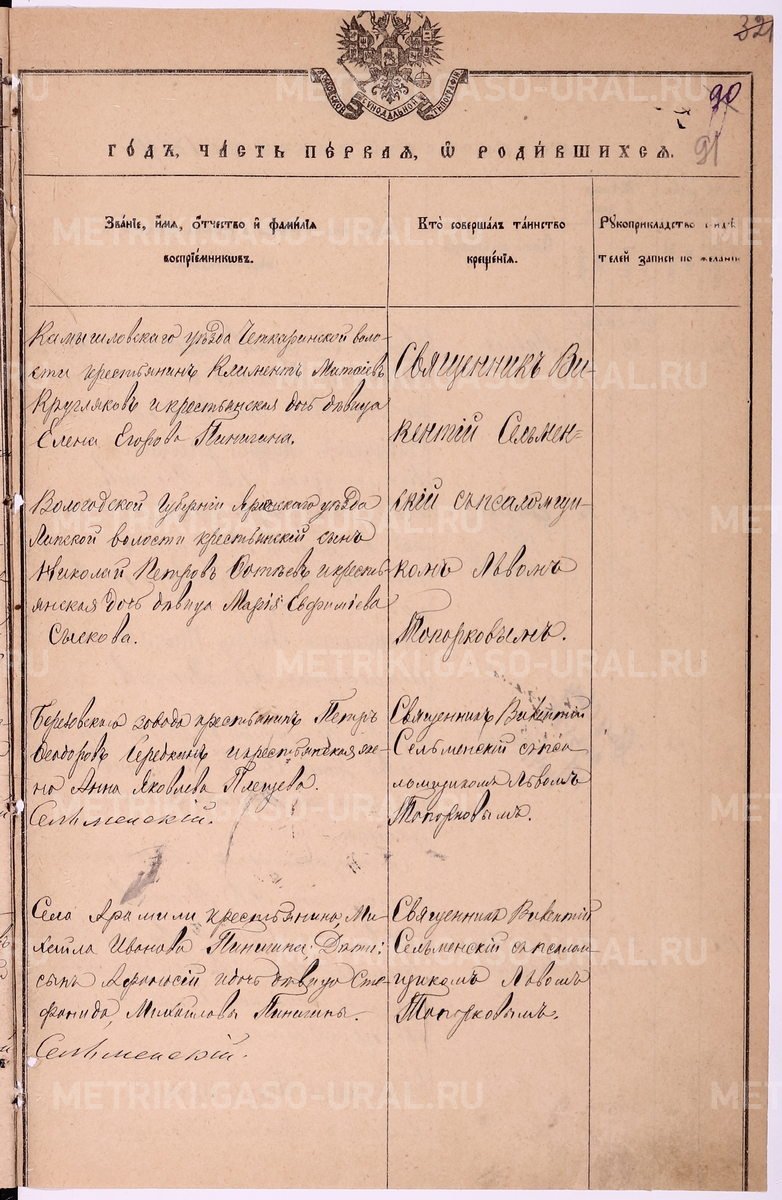 32
90
91
МОСКОВСКОЙ СѴНОДАЛЬНОЙ ТИПОГРАФІИ
ГО́ДЪ, ЧА́СТЬ ПЕ́РВАѦ, Ѡ҆ РОДИ́ВШИХСѦ.
Зва́нїе, и҆́мѧ, ѻ҆́тчество и҆ фами́лїѧ
воспрїе́мникѡвъ.
Кто̀ соверша́лъ та́инство
креще́нїѧ.
Рꙋкоприкла́дство
телей записи по желанїю
Камышловскаго уѣзда Четкаринской воло-
сти крестьянинъ Климентъ Матѳіевъ
Кругляковъ и крестьянская дочь дѣвица
Елена Егорова Пинигина.
Священникъ Ви-
кентій Сельмен-
скій съ псаломщи-
комъ Львомъ
Топорковымъ.
Вологодской Губерніи Яренскаго уѣзда
волости крестьянскій сынъ
Николай Петровъ и кресть-
янская дочь дѣвица Марія Евфиміева
Сыскова.
Березовскаго завода крестьянинъ Петръ
Ѳеодоровъ и крестьянская же-
на Анна Яковлева Плещева.
Сельменскій.
Священникъ Викентій
Сельменскій съ пса-
ломщикомъ Львомъ
Топорковымъ.
Села Арамили крестьянина Ми-
хаила Иванова Пинигина, Дѣти:
сынъ Аѳанасій и дочь дѣвица Сте-
фанида Михаиловы Пинигины.
Сельменскій.
Священникъ Викентій
Сельменскій съ псалом-
щикомъ Львомъ
Топорковымъ.
METRIKI.GASO-URAL.RU